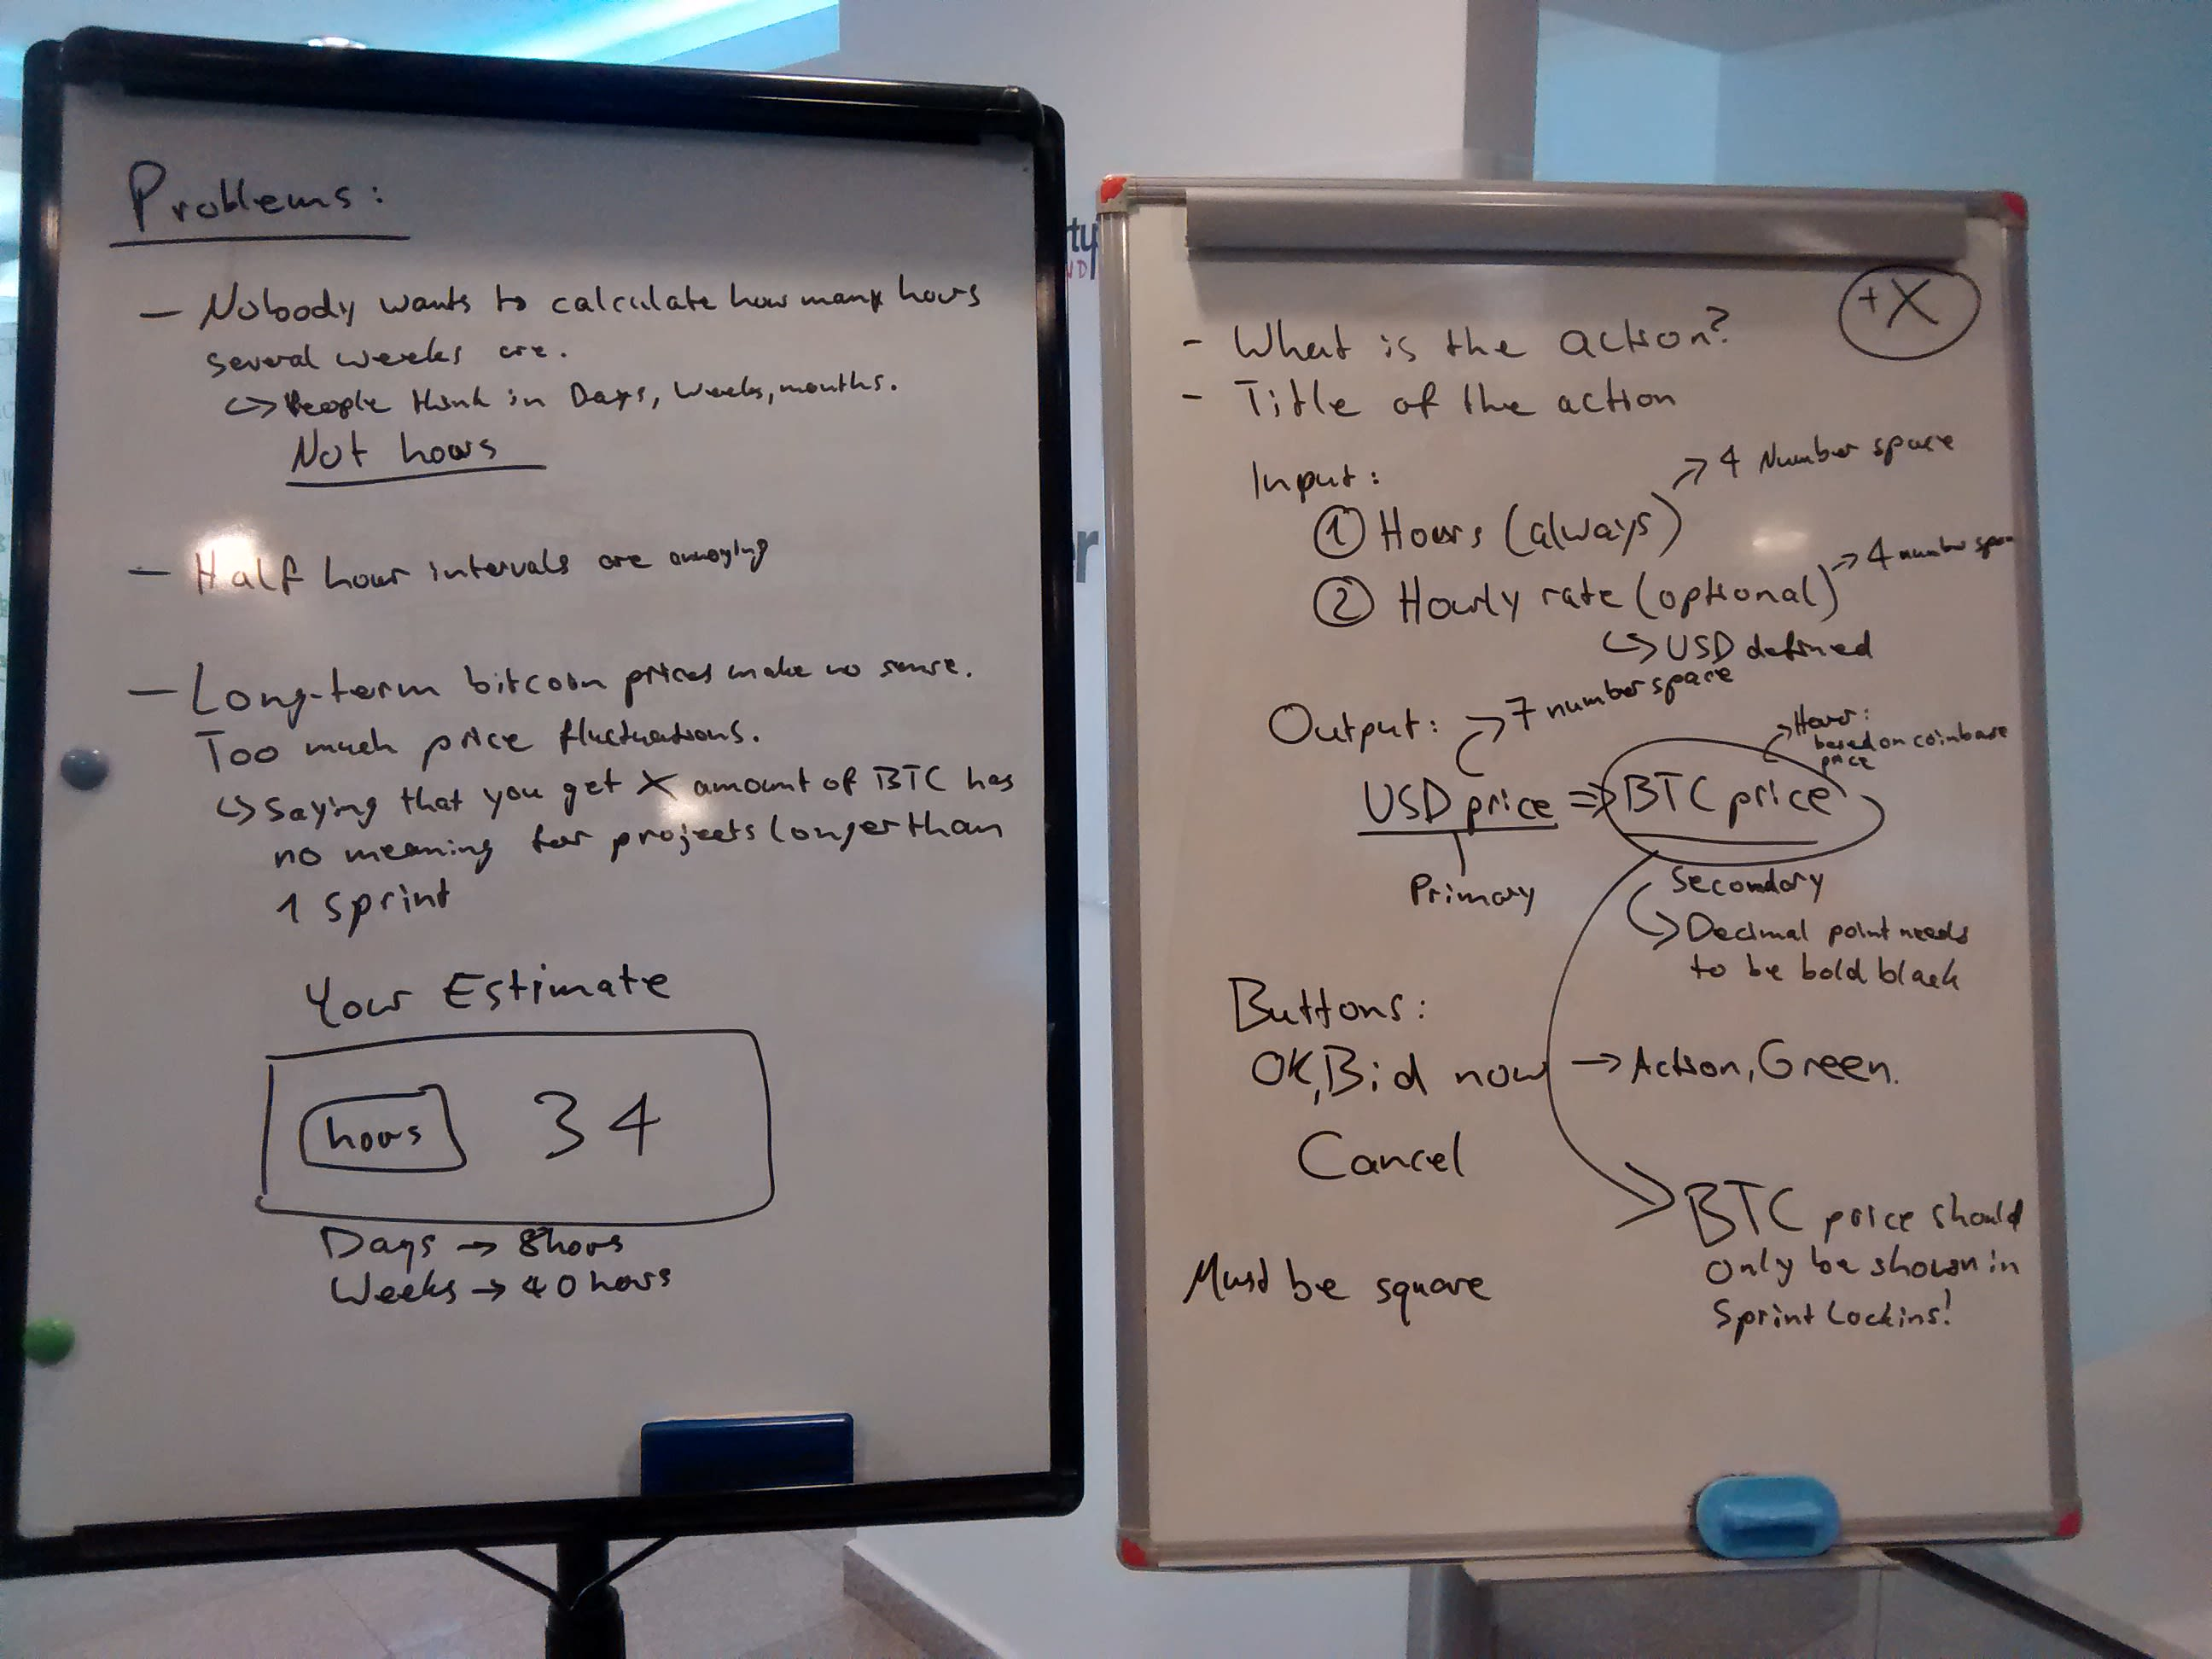 Problems:
- Nobody wants to calculate how many hours
several weeks are.
↳ People think in Days, Weeks, months.
Not hours
- Half hour intervals are annoying
- Long-term bitcoin prices make no sense.
Too much price fluctuations.
↳ Saying that you get X amount of BTC has
no meaning for projects longer than
1 sprint
Your Estimate
hours 34
Days → 8hours
Weeks → 40 hours
+X
- What is the action?
- Title of the action
Input:
→ 4 Number space
① Hours (always)
→ 4 number
② Hourly rate (optional)
↳ USD defined
Output: → 7 number space
→ Hover:
based on coinbase
price
USD price ⇒ BTC price
Primary
Secondary
↳ Decimal point needs
to be bold black
Buttons:
OK, Bid now → Action, Green.
Cancel
BTC price should
Only be shown in
Sprint Lockins!
Must be square